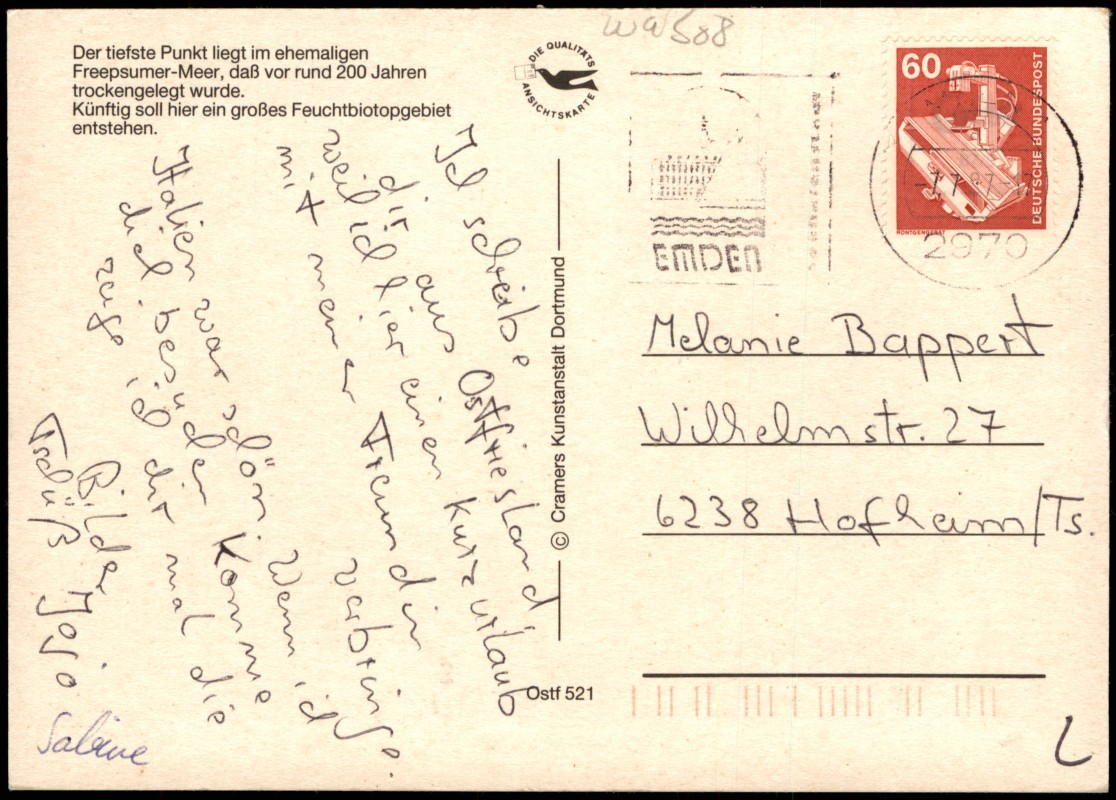 Der tiefste Punkt liegt im ehemaligen
Freepsumer-Meer, daß vor rund 200 Jahren
trockengelegt wurde.
Künftig soll hier ein großes Feuchtbiotopgebiet
entstehen.
DIE QUALITÄTS
ANSICHTSKARTE
wa508
60
DEUTSCHE BUNDESPOST
RÖNTGENGERÄT
EMDEN
2970
Ich schreibe
dir aus Ostfriesland
weil ich hier einen Kurzurlaub
mit meiner Freundin
verbringe.
Italien war schön Wenn ich
dich besuchen komme
zeige ich dir mal die
Bilder
Tschüß Jojo
Sabine
© Cramers Kunstanstalt Dortmund
Melanie Bappert
Wilhelmstr. 27
6238 Hofheim/Ts.
Ostf 521